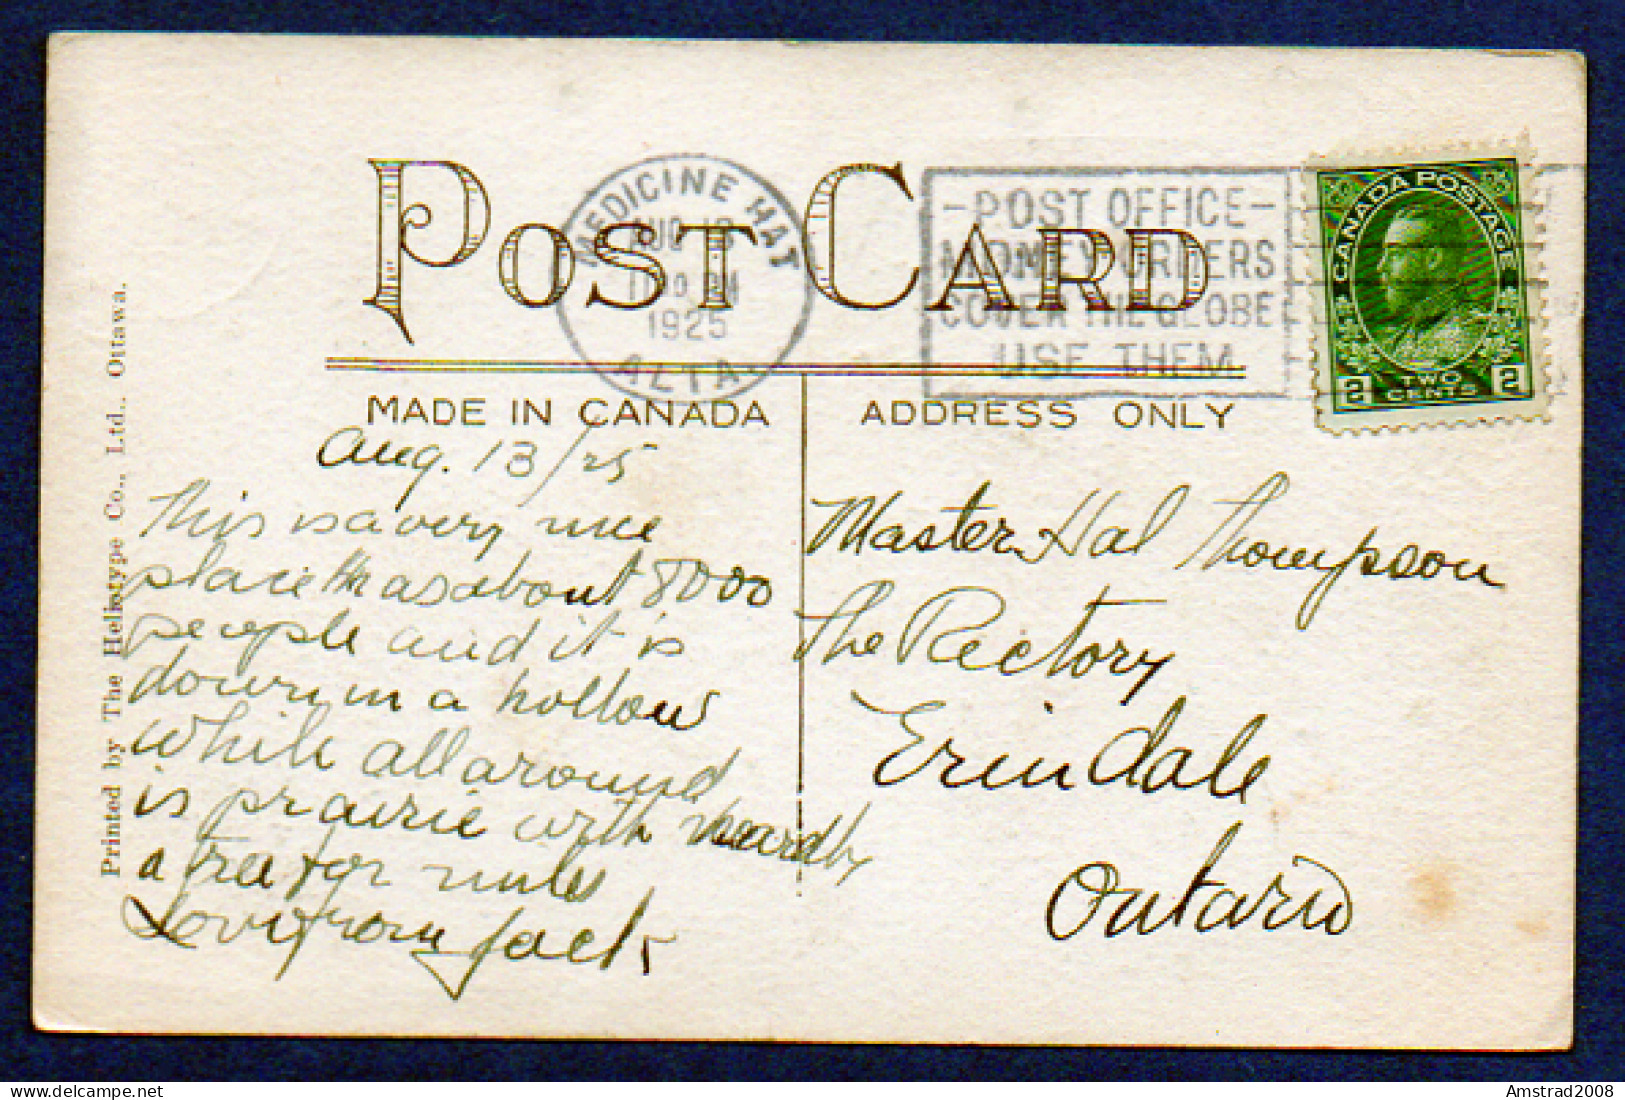 POST CARD
MEDICINE HAT
AUG 13
PM
1925
ALTA.
-POST OFFICE-
MONEY ORDERS
COVER THE GLOBE
USE THEM
CANADA POSTAGE
2 TWO CENTS 2
MADE IN CANADA
ADDRESS ONLY
Printed by The Heliotype Co., Ltd., Ottawa.
Aug. 13/25
This is a very nice
place it has about 8000
people and it is
down in a hollow
while all around
is prairie with hardly
a tree for miles
Love from Jack
Master Hal Thompson
The Rectory
Erindale
Ontario
Amstrad2008